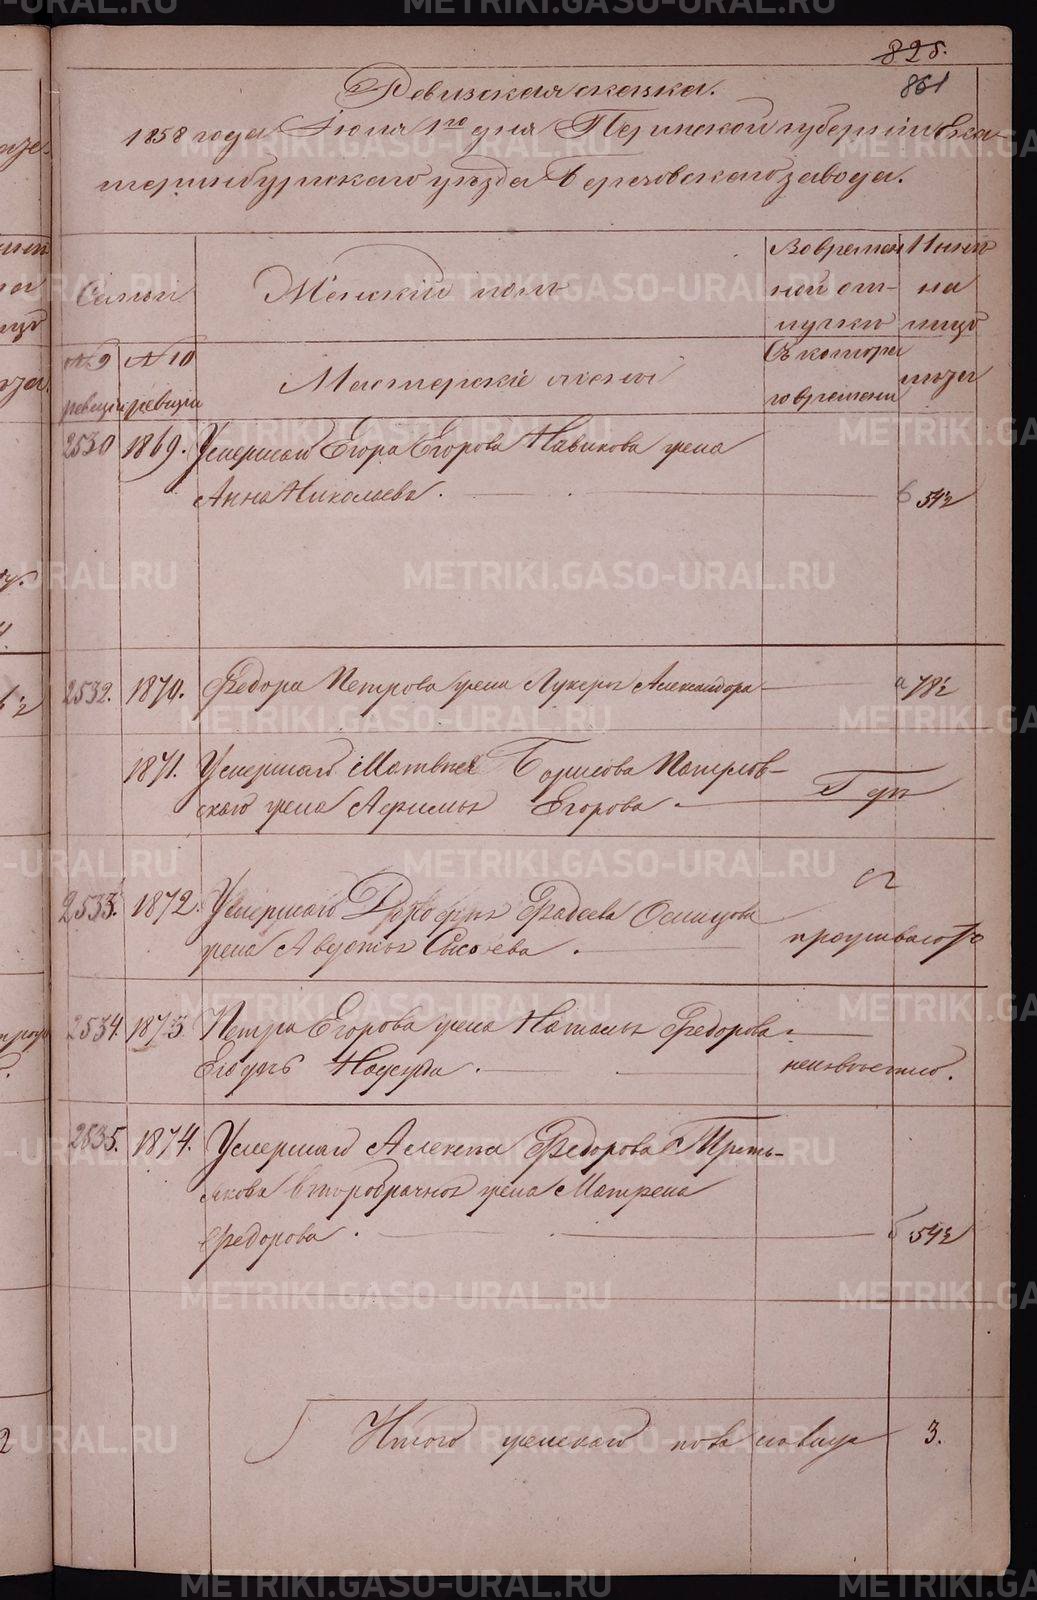 METRIKI.GASO-URAL.RU
825.
861
Ревизская сказка.
1858 года Июля 1го дня Пермской губернии Ека-
теринбургскаго уезда Березовскаго завода.
Семьи
Женский пол
Во времен
ной от-
лучке
Ныне
на
лицо
№ 9
ревизии
№ 10
ревизии
Мастерские жены
С котора
го времени
лета
2530
1869.
Умершаго Егора Егорова Новикова жена
Анна Николаева.
в 54½
2532.
1870.
Федора Петрова жена Лукерья Александрова
а 78½
1871.
Умершаго Матвея Борисова
скаго жена Афимья Егорова
Где
2533.
1872.
Умершаго Дорофея Фадеева Осипова
жена Авдотья Сысоева.
проживают
2534.
1873.
Петра Егорова жена Наталья Федорова
Надежда.
неизвестно.
2535.
1874.
Умершаго Алексея Федорова Треть-
якова второбрачная жена Матрена
Федорова.
б 54½
Итого женскаго пола налицо
3.